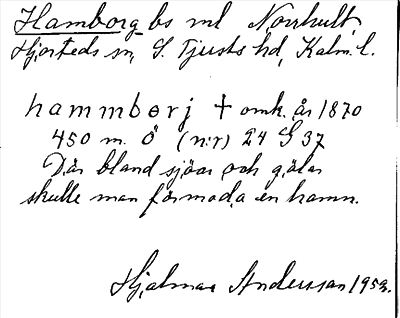 Hamborg bs ml Norrhult,
Hjorteds sn, S. Tjusts hd, Kalm. l.
hammborj † omk. år 1870
450 m. Ö (n:r) 24 G 37
Där bland sjöar och gölar
skulle man förmoda en hamn.
Hjalmar Andersson 1953.